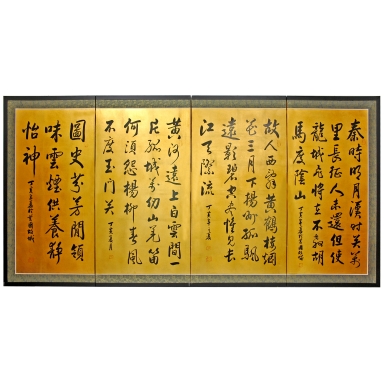 秦時明月漢时关萬
里長征人未還但使
龍城飛將在不教胡
馬度陰山
故人西辞黄鶴樓烟
花三月下揚州孤帆
遠影碧空尽惟見長
江天際流
黄河遠上白雲間一
片孤城万仞山羌笛
何須怨楊柳春風
不度玉门关
圖史芬芳閒領
味雲煙供養静
怡神